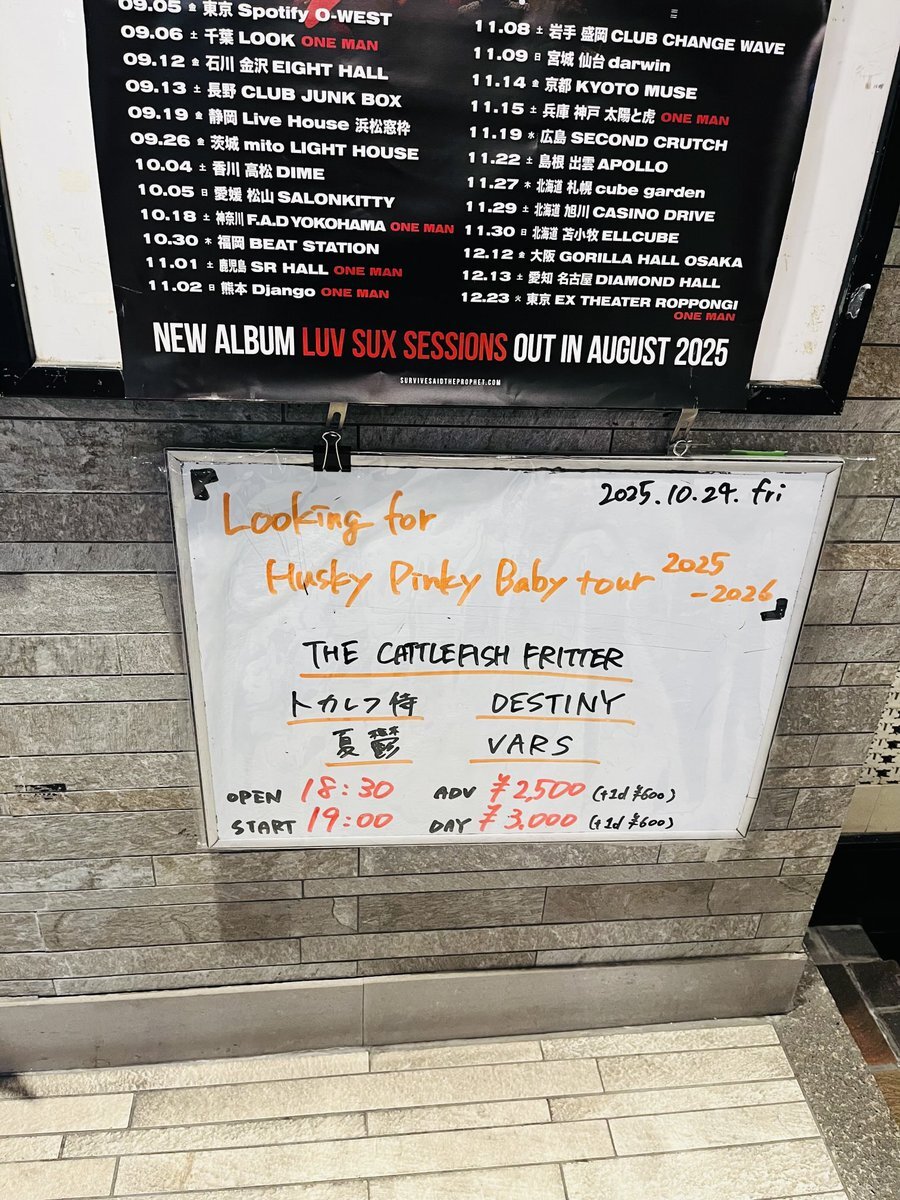 09.05 金 東京 Spotify O-WEST
09.06 土 千葉 LOOK ONE MAN
09.12 金 石川 金沢 EIGHT HALL
09.13 土 長野 CLUB JUNK BOX
09.19 金 静岡 Live House 浜松窓枠
09.26 金 茨城 mito LIGHT HOUSE
10.04 土 香川 高松 DIME
10.05 日 愛媛 松山 SALONKITTY
10.18 土 神奈川 F.A.D YOKOHAMA ONE MAN
10.30 木 福岡 BEAT STATION
11.01 土 鹿児島 SR HALL ONE MAN
11.02 日 熊本 Django ONE MAN
11.08 土 岩手 盛岡 CLUB CHANGE WAVE
11.09 日 宮城 仙台 darwin
11.14 金 京都 KYOTO MUSE
11.15 土 兵庫 神戸 太陽と虎 ONE MAN
11.19 水 広島 SECOND CRUTCH
11.22 土 島根 出雲 APOLLO
11.27 木 北海道 札幌 cube garden
11.29 土 北海道 旭川 CASINO DRIVE
11.30 日 北海道 苫小牧 ELLCUBE
12.12 金 大阪 GORILLA HALL OSAKA
12.13 土 愛知 名古屋 DIAMOND HALL
12.23 火 東京 EX THEATER ROPPONGI
ONE MAN
NEW ALBUM LUV SUX SESSIONS OUT IN AUGUST 2025
SURVIVESAIDTHEPROPHET.COM
2025.10.24. fri
Looking for
Husky Pinky Baby tour 2025
-2026
THE CATTLEFISH FRITTER
トカレフ侍 DESTINY
夏鬱 VARS
OPEN 18:30 ADV ¥2,500 (+1d ¥600)
START 19:00 DAY ¥3,000 (+1d ¥600)